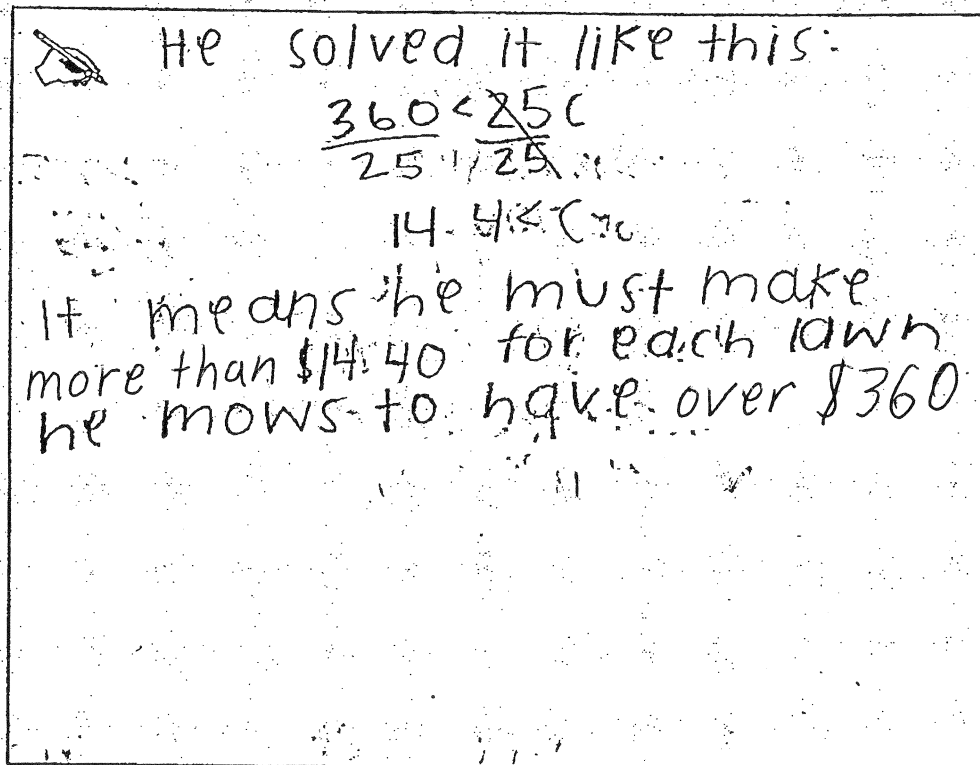 He solved it like this:
360 < 25c
25 25
14.4 < c
It means he must make
more than $14.40 for each lawn
he mows to have over $360